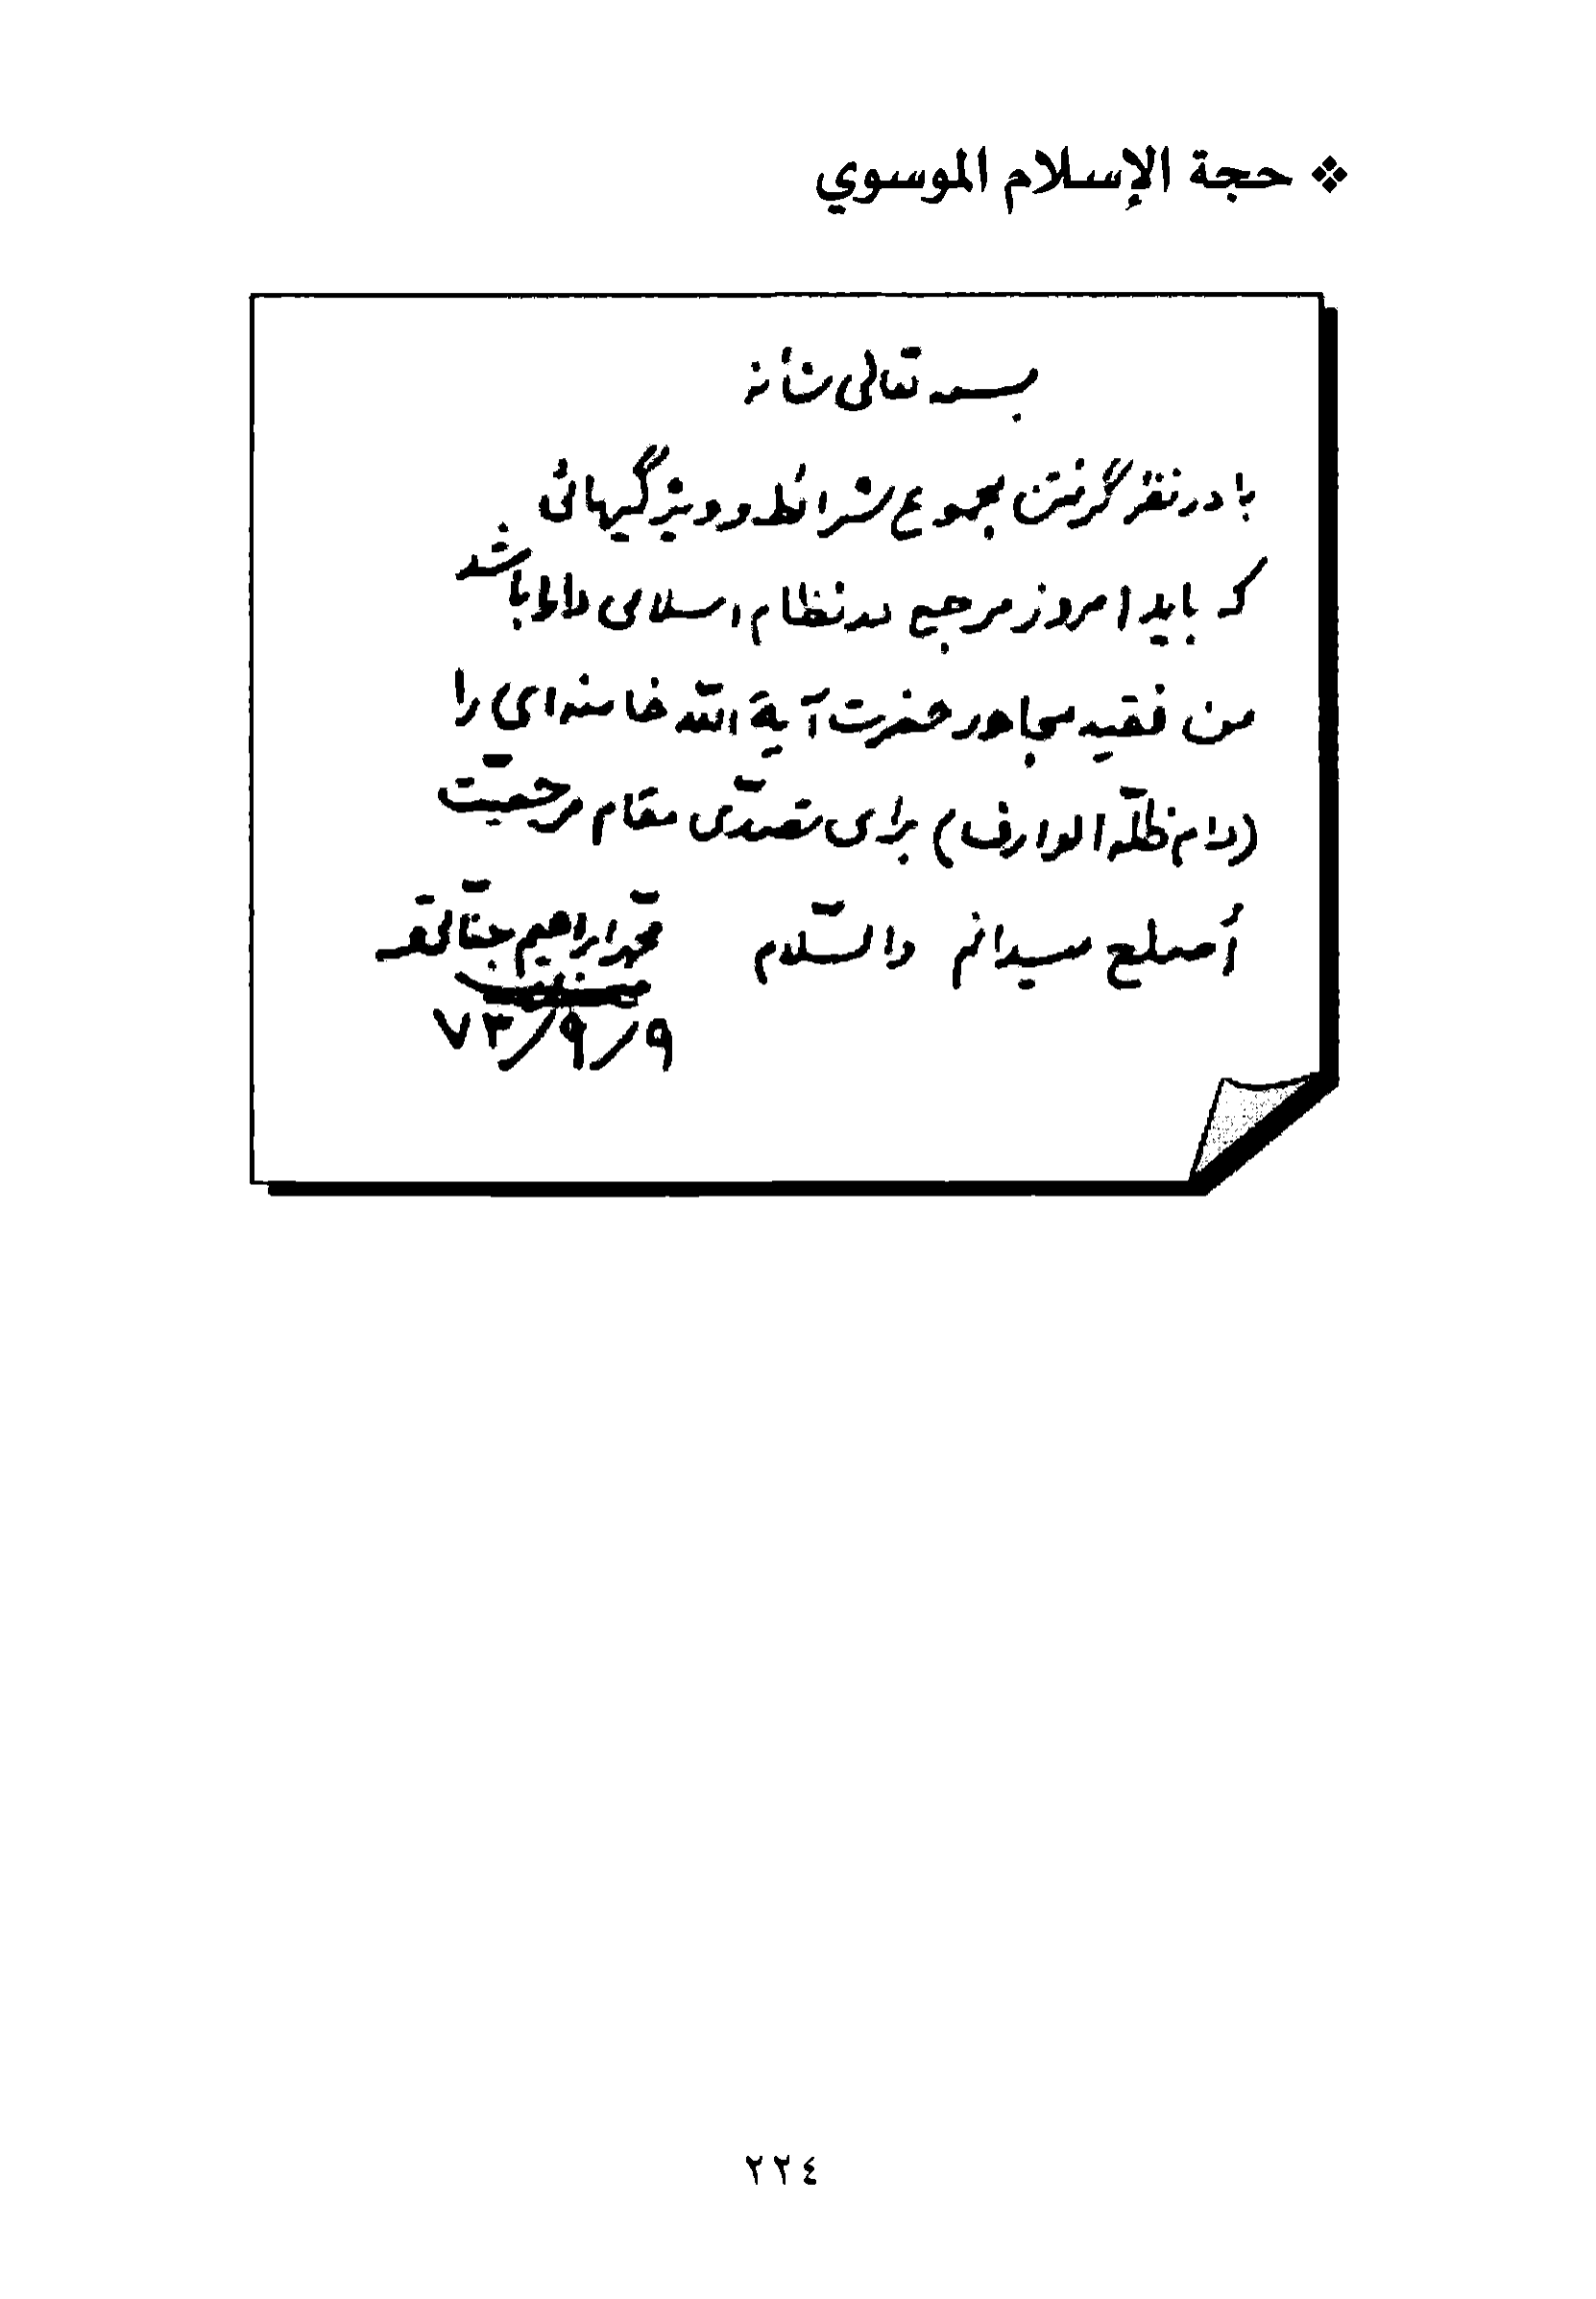 ❖ حجة الإسلام الموسوي
بسمه تعالی شأنه
با در نظر گرفتن مجموع شرائط و ویژگیهائی
که باید امروز مرجع در نظام اسلامی دارا باشد
من فقیه مجاهد حضرت آیة الله خامنه‌ای را
(دام ظلّه الوارف) برای تصدّی مقام مرجعیّت
أصلح میدانم والسّلام محمّد ابراهیم جنّاتی
۷۳/۹/۹
٢٢٤